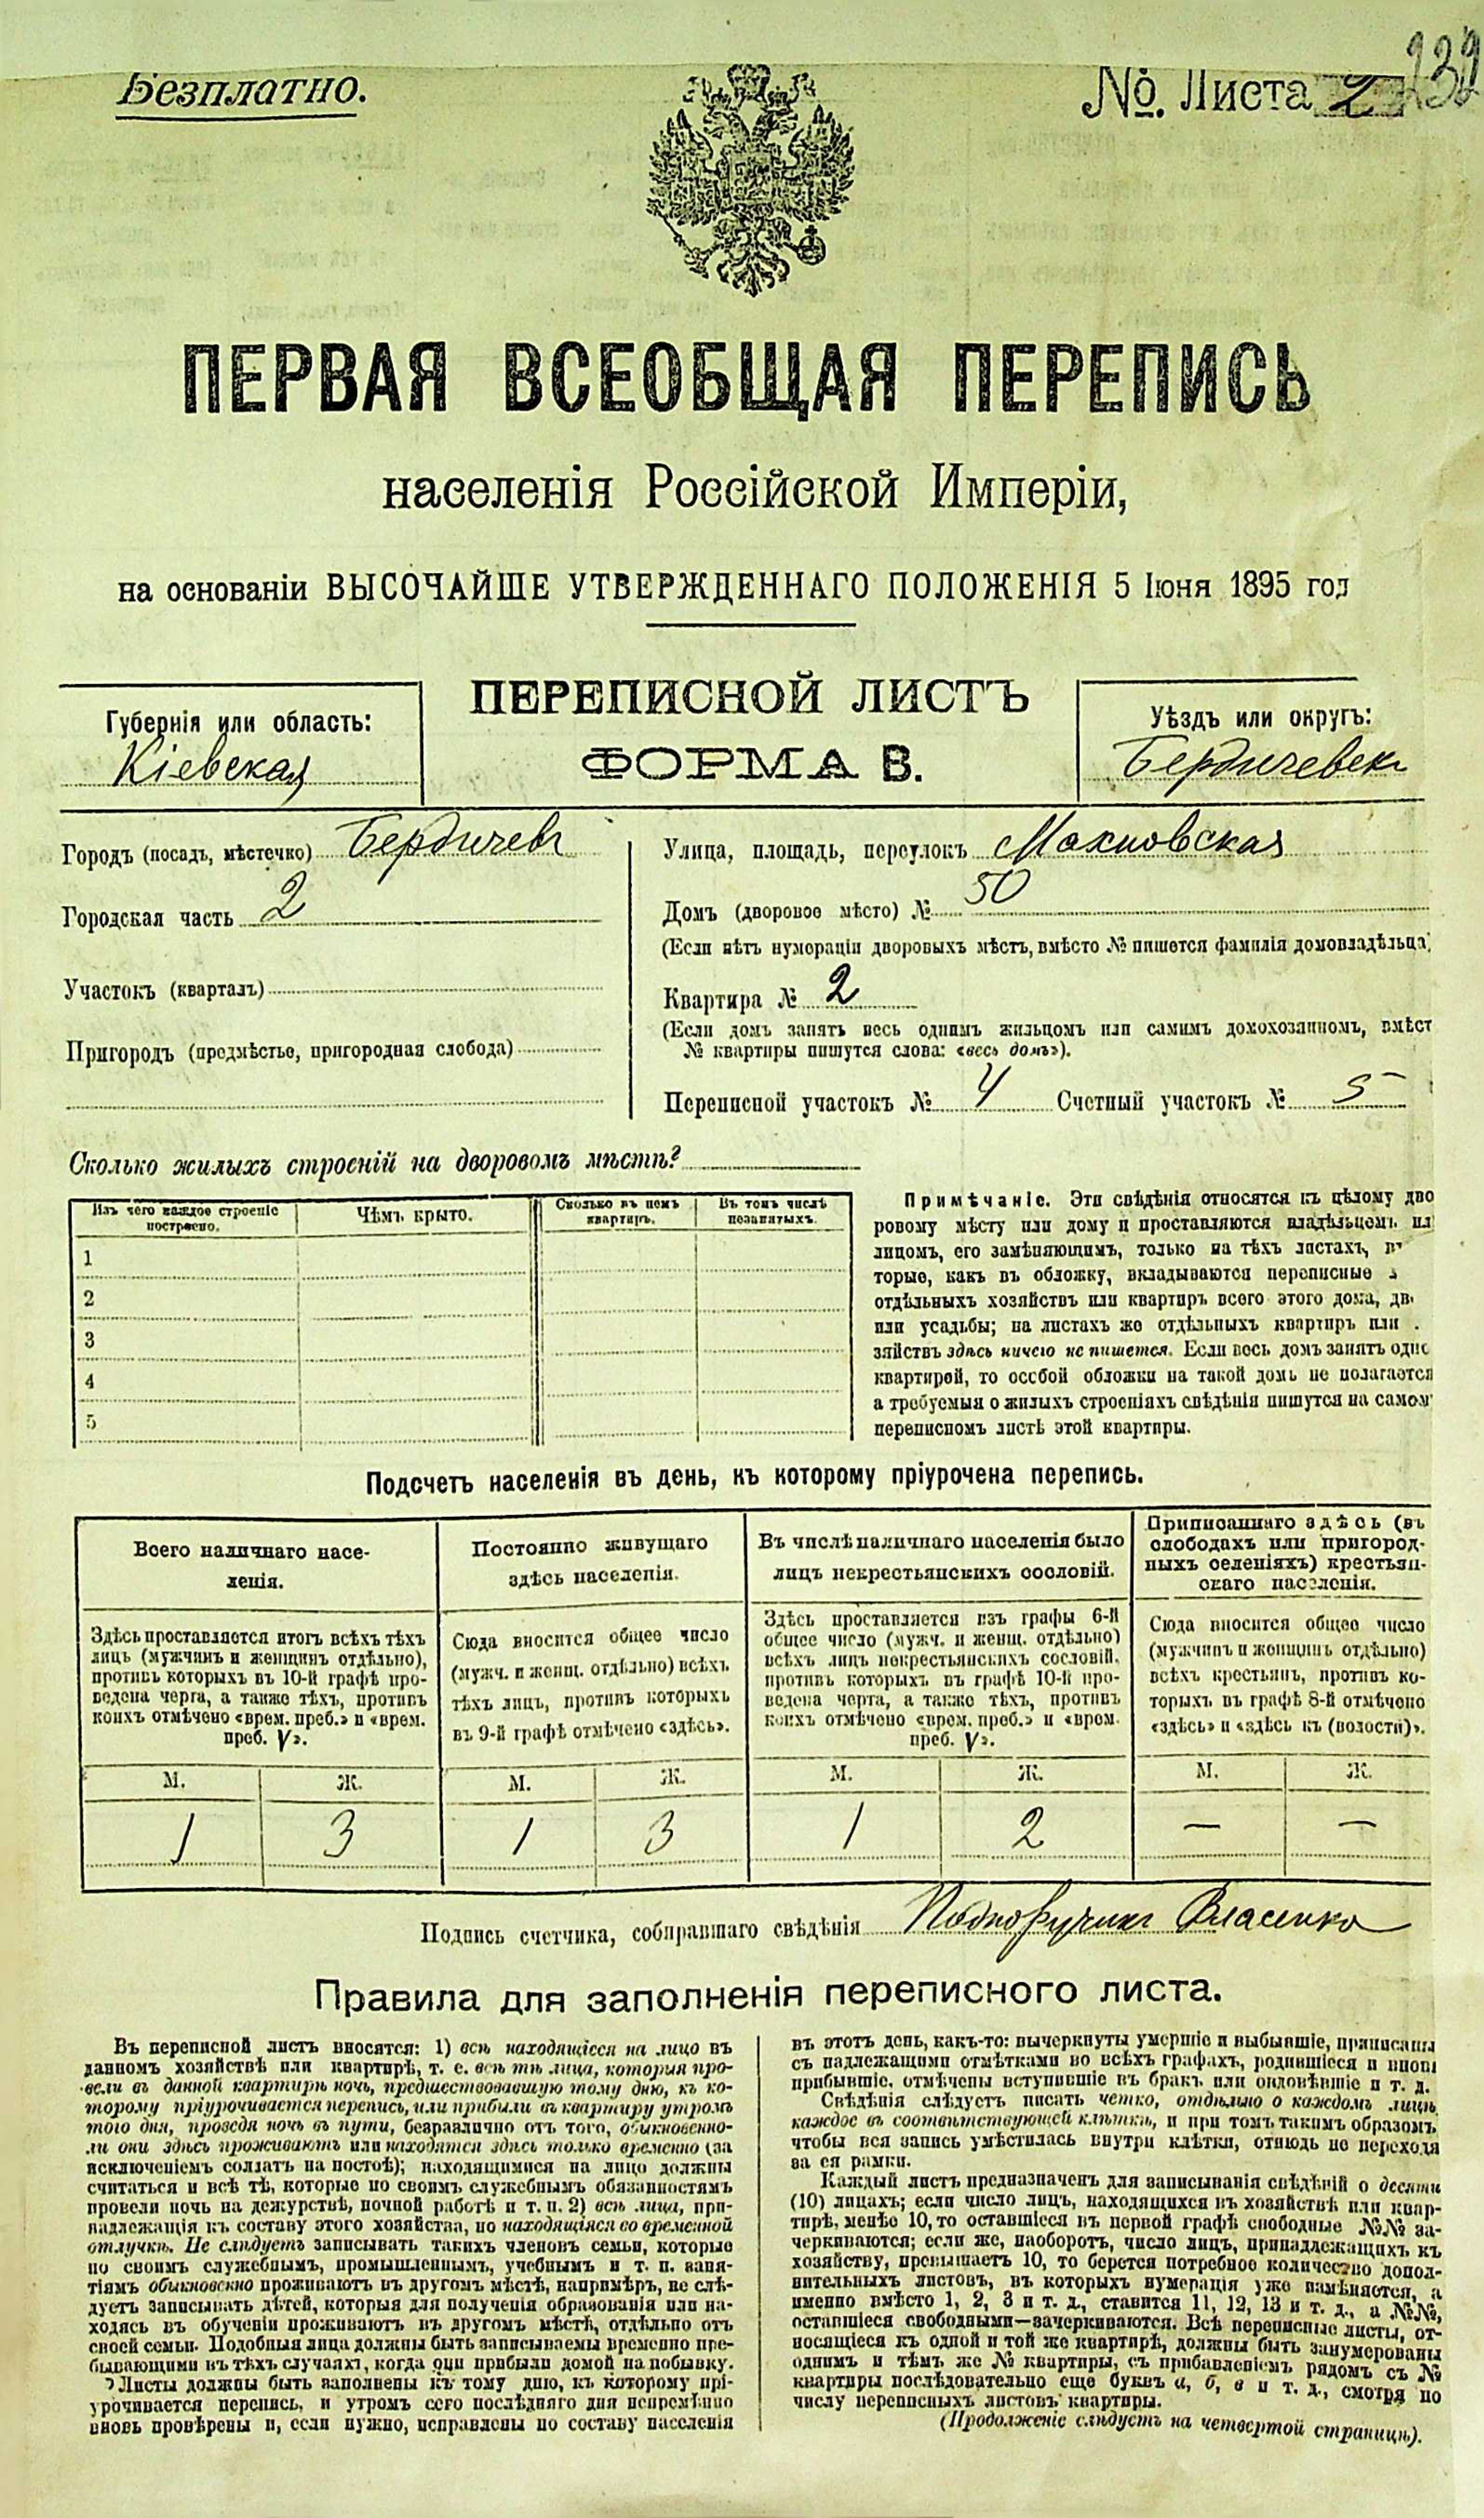 Безплатно.
№. Листа 2
232
ПЕРВАЯ ВСЕОБЩАЯ ПЕРЕПИСЬ
населенія Россійской Имперіи,
на основаніи ВЫСОЧАЙШЕ УТВЕРЖДЕННАГО ПОЛОЖЕНІЯ 5 Іюня 1895 год
ПЕРЕПИСНОЙ ЛИСТЪ
ФОРМА В.
Губернія или область:
Кіевская
Уѣздъ или округъ:
Бердичевск
Городъ (посадъ, мѣстечко) Бердичевъ
Городская часть 2
Участокъ (кварталъ)
Пригородъ (предмѣстье, пригородная слобода)
Улица, площадь, переулокъ Махновская
Домъ (дворовое мѣсто) № 50
(Если нѣтъ нумераціи дворовыхъ мѣстъ, вмѣсто № пишется фамилія домовладѣльца
Квартира № 2
(Если домъ занятъ весь однимъ жильцомъ или самимъ домохозяиномъ, вмѣст
№ квартиры пишутся слова: «весь домъ»).
Переписной участокъ № 4 Счетный участокъ № 5
Сколько жилыхъ строеній на дворовомъ мѣстѣ?
Изъ чего каждое строеніе
построено.
Чѣмъ крыто.
Сколько въ немъ
квартиръ.
Въ томъ числѣ
незанятыхъ.
1
2
3
4
5
Примѣчаніе. Эти свѣдѣнія относятся къ цѣлому дво
ровому мѣсту или дому и проставляются владѣльцемъ ил
лицомъ, его замѣняющимъ, только на тѣхъ листахъ, в
торые, какъ въ обложку, вкладываются переписные
отдѣльныхъ хозяйствъ или квартиръ всего этого дома, дв
или усадьбы; на листахъ же отдѣльныхъ квартиръ или
зяйствъ здѣсь ничего не пишется. Если весь домъ занятъ одно
квартирой, то особой обложки на такой домъ не полагается
а требуемыя о жилыхъ строеніяхъ свѣдѣнія пишутся на самом
переписномъ листѣ этой квартиры.
Подсчетъ населенія въ день, къ которому пріурочена перепись.
Всего наличнаго насе-
ленія.
Здѣсь проставляется итогъ всѣхъ тѣхъ
лицъ (мужчинъ и женщинъ отдѣльно),
противъ которыхъ въ 10-й графѣ про-
ведена черта, а также тѣхъ, противъ
коихъ отмѣчено «врем. преб.» и «врем.
преб. V».
М. Ж.
1 3
Постоянно живущаго
здѣсь населенія.
Сюда вносится общее число
(мужч. и женщ. отдѣльно) всѣхъ
тѣхъ лицъ, противъ которыхъ
въ 9-й графѣ отмѣчено «здѣсь».
М. Ж.
1 3
Въ числѣ наличнаго населенія было
лицъ некрестьянскихъ сословій.
Здѣсь проставляется изъ графы 6-й
общее число (мужч. и женщ. отдѣльно)
всѣхъ лицъ некрестьянскихъ сословій,
противъ которыхъ въ графѣ 10-й про-
ведена черта, а также тѣхъ, противъ
коихъ отмѣчено «врем. преб.» и «врем.
преб. V».
М. Ж.
1 2
Приписаннаго здѣсь (въ
слободахъ или пригород-
ныхъ селеніяхъ) крестьян-
скаго населенія.
Сюда вносится общее число
(мужчинъ и женщинъ отдѣльно)
всѣхъ крестьянъ, противъ ко-
торыхъ въ графѣ 8-й отмѣчено
«здѣсь» и «здѣсь къ (волости)».
М. Ж.
— —
Подпись счетчика, собиравшаго свѣдѣнія Подпоручикъ Власенко
Правила для заполненія переписного листа.
Въ переписной листъ вносятся: 1) всѣ находящіеся на лицо въ
данномъ хозяйствѣ или квартирѣ, т. е. всѣ тѣ лица, которыя про-
вели въ данной квартирѣ ночь, предшествовавшую тому дню, къ ко-
торому пріурочивается перепись, или прибыли въ квартиру утромъ
того дня, проведя ночь въ пути, безразлично отъ того, обыкновенно-
ли они здѣсь проживаютъ или находятся здѣсь только временно (за
исключеніемъ солдатъ на постоѣ); находящимися на лицо должны
считаться и всѣ тѣ, которые по своимъ служебнымъ обязанностямъ
провели ночь на дежурствѣ, ночной работѣ и т. п. 2) всѣ лица, при-
надлежащія къ составу этого хозяйства, но находящіяся во временной
отлучкѣ. Не слѣдуетъ записывать такихъ членовъ семьи, которые
по своимъ служебнымъ, промышленнымъ, учебнымъ и т. п. заня-
тіямъ обыкновенно проживаютъ въ другомъ мѣстѣ, напримѣръ, не слѣ-
дуетъ записывать дѣтей, которыя для полученія образованія или на-
ходясь въ обученіи проживаютъ въ другомъ мѣстѣ, отдѣльно отъ
своей семьи. Подобныя лица должны быть записываемы временно пре-
бывающими въ тѣхъ случаяхъ, когда они прибыли домой на побывку.
Листы должны быть заполнены къ тому дню, къ которому прі-
урочивается перепись, и утромъ сего послѣдняго дня непремѣнно
вновь провѣрены и, если нужно, исправлены по составу населенія
въ этотъ день, какъ-то: вычеркнуты умершіе и выбывшіе, приписаны
съ надлежащими отмѣтками во всѣхъ графахъ, родившіеся и вновь
прибывшіе, отмѣчены вступившіе въ бракъ или овдовѣвшіе и т. д.
Свѣдѣнія слѣдуетъ писать четко, отдѣльно о каждомъ лицѣ,
каждое въ соотвѣтствующей клѣткѣ, и при томъ такимъ образомъ
чтобы вся запись умѣстилась внутри клѣтки, отнюдь не переходя
за ея рамки.
Каждый листъ предназначенъ для записыванія свѣдѣній о десяти
(10) лицахъ; если число лицъ, находящихся въ хозяйствѣ или квар-
тирѣ, менѣе 10, то оставшіеся въ первой графѣ свободные №№ за-
черкиваются; если же, наоборотъ, число лицъ, принадлежащихъ къ
хозяйству, превышаетъ 10, то берется потребное количество допол-
нительныхъ листовъ, въ которыхъ нумерація уже измѣняется, а
именно вмѣсто 1, 2, 3 и т. д., ставится 11, 12, 13 и т. д., а №№,
оставшіеся свободными—зачеркиваются. Всѣ переписные листы, от-
носящіеся къ одной и той же квартирѣ, должны быть занумерованы
однимъ и тѣмъ же № квартиры, съ прибавленіемъ рядомъ съ №
квартиры послѣдовательно еще буквъ а, б, в и т. д., смотря по
числу переписныхъ листовъ квартиры.
(Продолженіе слѣдуетъ на четвертой страницѣ).